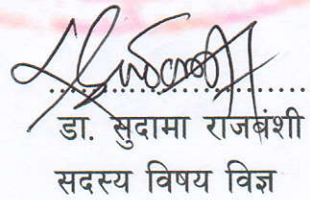 डा. सुदामा राजबंशी
सदस्य विषय विज्ञ